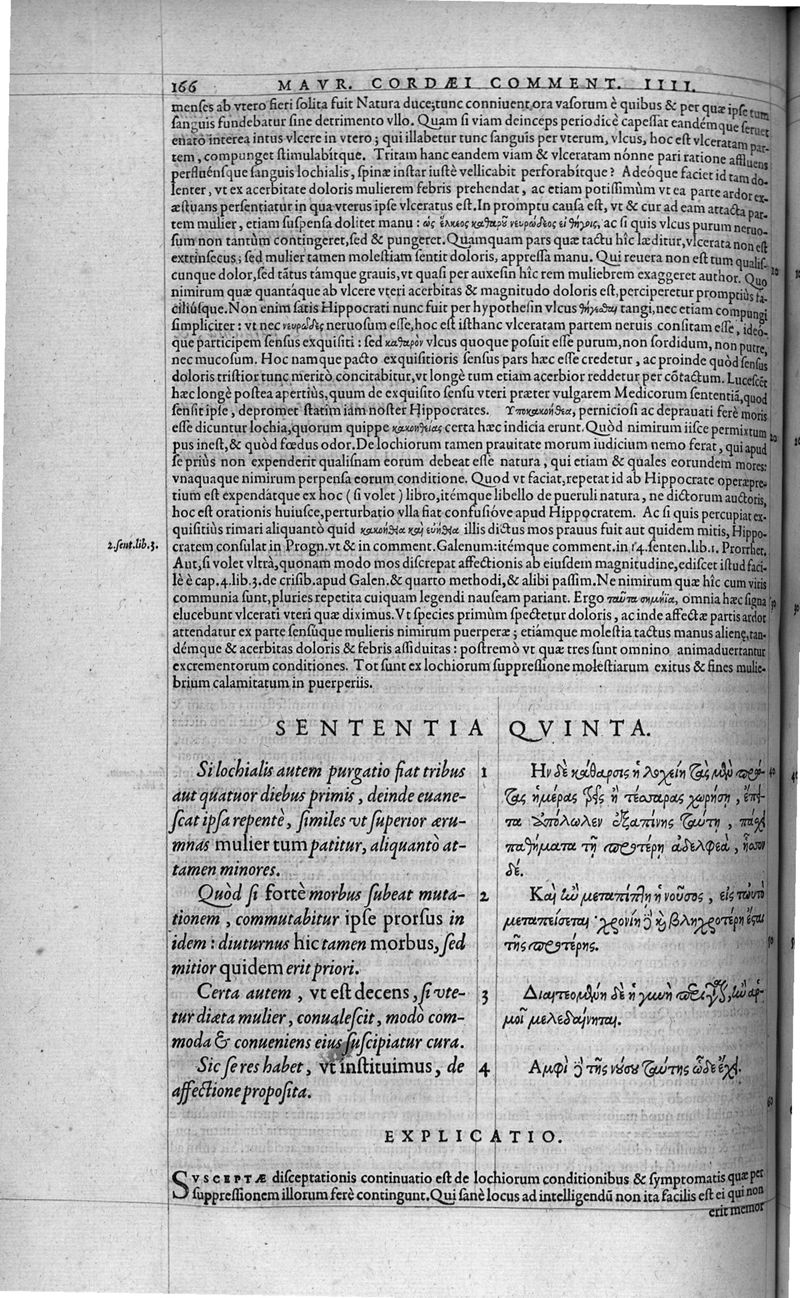 166 MAVR. CORDÆI COMMENT. IIII.
menses ab vtero fieri solita fuit Natura duce; tunc conniuent ora vasorum è quibus & per quæ ipse tum
sanguis fundebatur sine detrimento vllo. Quam si viam deinceps periodicè capessat eandémque seruet
enato interea intus vlcere in vtero; qui illabetur tunc sanguis per vterum, vlcus, hoc est vlceratam par-
tem, compunget stimulabítque. Tritam hanc eandem viam & vlceratam nónne pari ratione affluens
perfluénsque sanguis lochialis, spinæ instar iustè vellicabit perforabítque? Adeóque faciet id tam do-
lenter, vt ex acerbitate doloris mulierem febris prehendat, ac etiam potissimùm vt ea parte ardor ex-
æstuans persentiatur in qua vterus ipse vlceratus est. In promptu causa est, vt & cur ad eam attacta par-
tem mulier, etiam suspensa dolitet manu: ὡς ἕλκεος καθαροῦ νευρώδεος εἰ θίγοις, ac si quis vlcus purum neruo-
sum non tantùm contingeret, sed & pungeret. Quamquam pars quæ tactu hîc læditur, vlcerata non est
extrinsecus; sed mulier tamen molestiam sentit doloris, appressa manu. Qui reuera non est tum qualis-
cunque dolor, sed tãtus támque grauis, vt quasi per auxesin hîc rem muliebrem exaggeret author. Quo
nimirum quæ quantáque ab vlcere vteri acerbitas & magnitudo doloris est, perciperetur promptiùs fa-
ciliúsque. Non enim satis Hippocrati nunc fuit per hypothesin vlcus tangi, nec etiam compungi
simpliciter: vt nec νευρῶδες neruosum esse, hoc est isthanc vlceratam partem neruis consitam esse, ideo-
que participem sensus exquisiti: sed καθαρὸν vlcus quoque posuit esse purum, non sordidum, non putre,
nec mucosum. Hoc namque pacto exquisitioris sensus pars hæc esse credetur, ac proinde quòd sensus
doloris tristior tunc meritò concitabitur, vt longè tum etiam acerbior reddetur per cõtactum. Lucescẽt
hæc longè postea apertiùs, quum de exquisito sensu vteri præter vulgarem Medicorum sententiã, quod
sensit ipse, depromet statim iam noster Hippocrates. Ὑποκακοήθεα, perniciosi ac deprauati ferè moris
esse dicuntur lochia, quorum quippe κακοηθείας certa hæc indicia erunt. Quòd nimirum iisce permixtum
pus inest, & quòd fœdus odor. De lochiorum tamen prauitate morum iudicium nemo ferat, qui apud
se priùs non expenderit qualisnam eorum debeat esse natura, qui etiam & quales eorundem mores:
vnaquaque nimirum perpensa eorum conditione. Quod vt faciat, repetat id ab Hippocrate operæpre-
tium est expendátque ex hoc (si volet) libro, itémque libello de pueruli natura, ne dictorum auctoris,
hoc est orationis huiusce, perturbatio vlla fiat confusióve apud Hippocratem. Ac si quis percupiat ex-
quisitiùs rimari aliquantò quid κακοήθεια καὶ εὐήθεια illis dictus mos prauus fuit aut quidem mitis, Hippo-
2. sent. lib. 3. cratem consulat in Progn. vt & in comment. Galenum: itémque comment. in 14. senten. lib. 1. Prorrhet.
Aut, si volet vltrà, quonam modo mos discrepat affectionis ab eiusdem magnitudine, ediscet istud faci-
lè è cap. 4. lib. 3. de crisib. apud Galen. & quarto methodi, & alibi passim. Ne nimirum quæ hîc cum viris
communia sunt, pluries repetita cuiquam legendi nauseam pariant. Ergo ταῦτα σημήϊα, omnia hæc signa
elucebunt vlcerati vteri quæ diximus. Vt species primùm spectetur doloris, ac inde affectæ partis ardor
attendatur ex parte sensúque mulieris nimirum puerperæ; etiámque molestia tactus manus alienę, tan-
démque & acerbitas doloris & febris assiduitas: postremò vt quæ tres sunt omnino animaduertantur
excrementorum conditiones. Tot sunt ex lochiorum suppressione molestiarum exitus & fines mulie-
brium calamitatum in puerperiis.
SENTENTIA QVINTA.
Si lochialis autem purgatio fiat tribus
aut quatuor diebus primis, deinde euane-
scat ipsa repentè, similes vt superior æru-
mnas mulier tum patitur, aliquantò at-
tamen minores.
Quòd si fortè morbus subeat muta-
tionem, commutabitur ipse prorsus in
idem: diuturnus hic tamen morbus, sed
mitior quidem erit priori.
Certa autem, vt est decens, si vte-
tur diæta mulier, conualescit, modò com-
moda & conueniens eius suscipiatur cura.
Sic se res habet, vt instituimus, de
affectione proposita.
1 Ην δὲ κάθαρσις ἡ λοχείη τὰς μὲν πρώ-
τας ἡμέρας τρεῖς ἢ τέσσαρας χωρήσῃ, ἔπει-
τα ἀπόλωλεν ἐξαπίνης ταύτῃ, πάσχει
παθήματα τῇ προτέρῃ ἀδελφεὰ, ἧσσον
δέ.
2 Καὶ ἢν μεταπίπτῃ ἡ νοῦσος, εἰς τωὐτὸ
μεταπείσεται· χρονίη δὲ καὶ βληχροτέρη ἔσται
τῆς προτέρης.
3 Διαιτεομένη δὲ ἡ γυνὴ περιέσται, ἢν ἁρ-
μοῖ μελεδαίνηται.
4 Αμφὶ δὲ τῆς νούσου ταύτης ὧδε ἔχει.
EXPLICATIO.
SVSCEPTÆ disceptationis continuatio est de lochiorum conditionibus & symptomatis quæ per
suppressionem illorum ferè contingunt. Qui sanè locus ad intelligendũ non ita facilis est ei qui non
erit memor